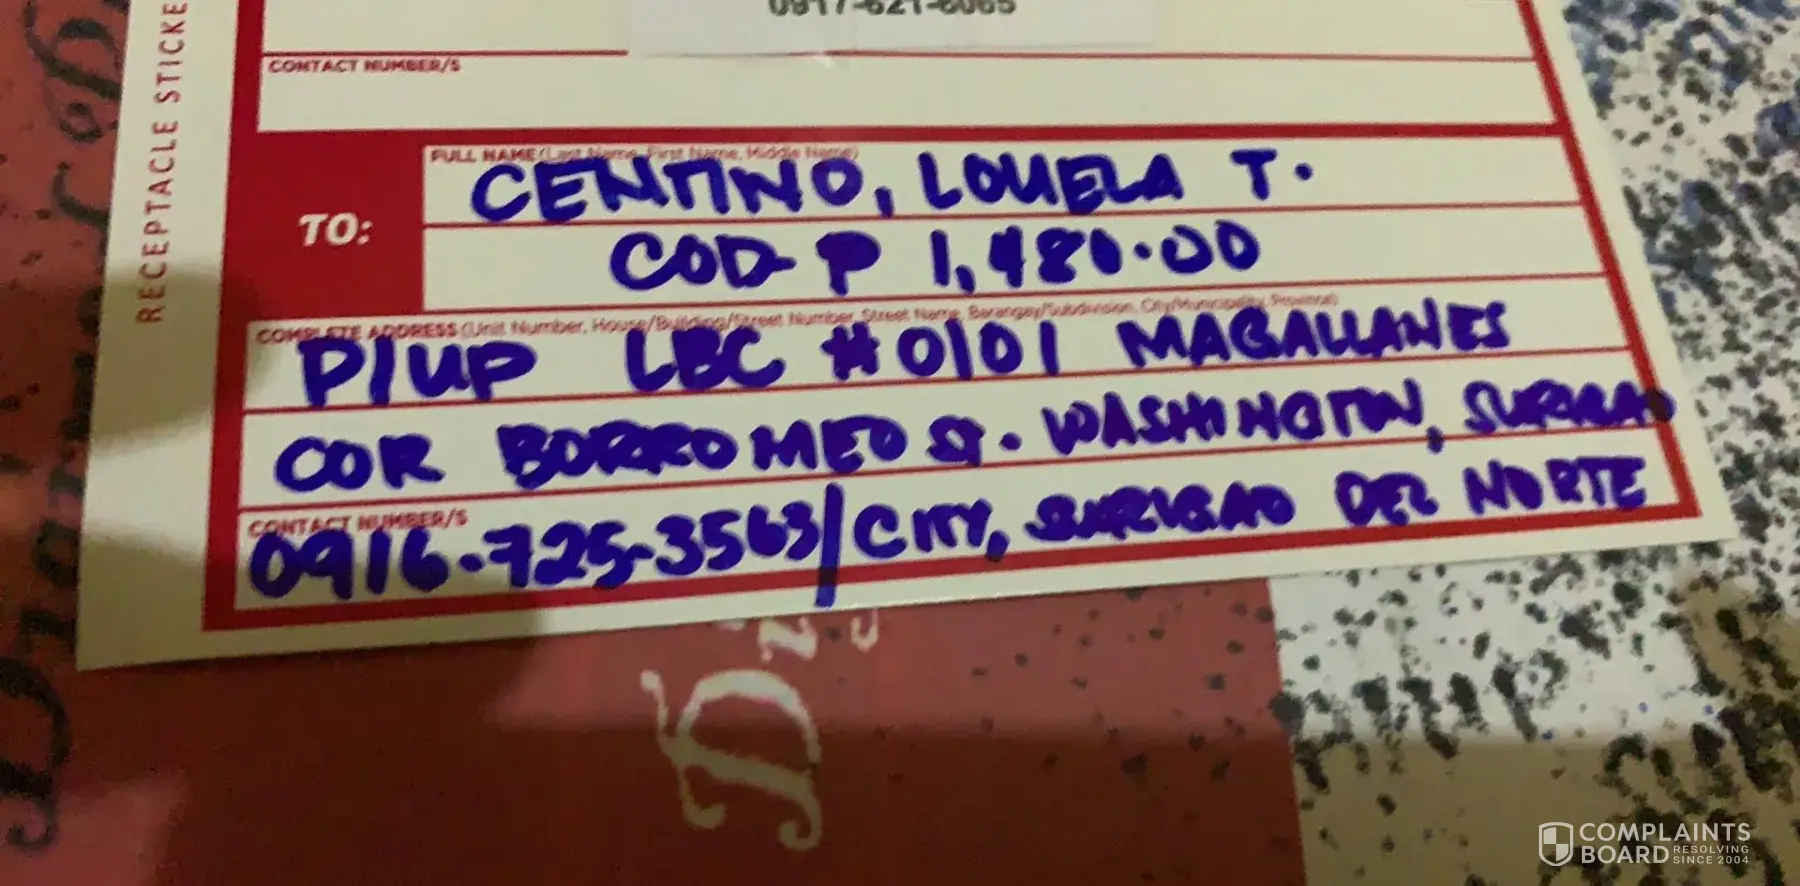 0917-621-6065
CONTACT NUMBER/S
RECEPTACLE STICKE
FULL NAME (Last Name, First Name, Middle Name)
TO:
CENTINO, LOUELA T.
COD P 1,480.00
COMPLETE ADDRESS (Unit Number, House/Building/Street Number, Street Name, Barangay/Subdivision, City/Municipality, Province)
P/UP LBC #0101 MAGALLANES
COR BORROMEO ST. WASHINGTON, SURIGAO
CONTACT NUMBER/S
0916-725-3563/CITY, SURIGAO DEL NORTE
COMPLAINTS
BOARD RESOLVING
SINCE 2004